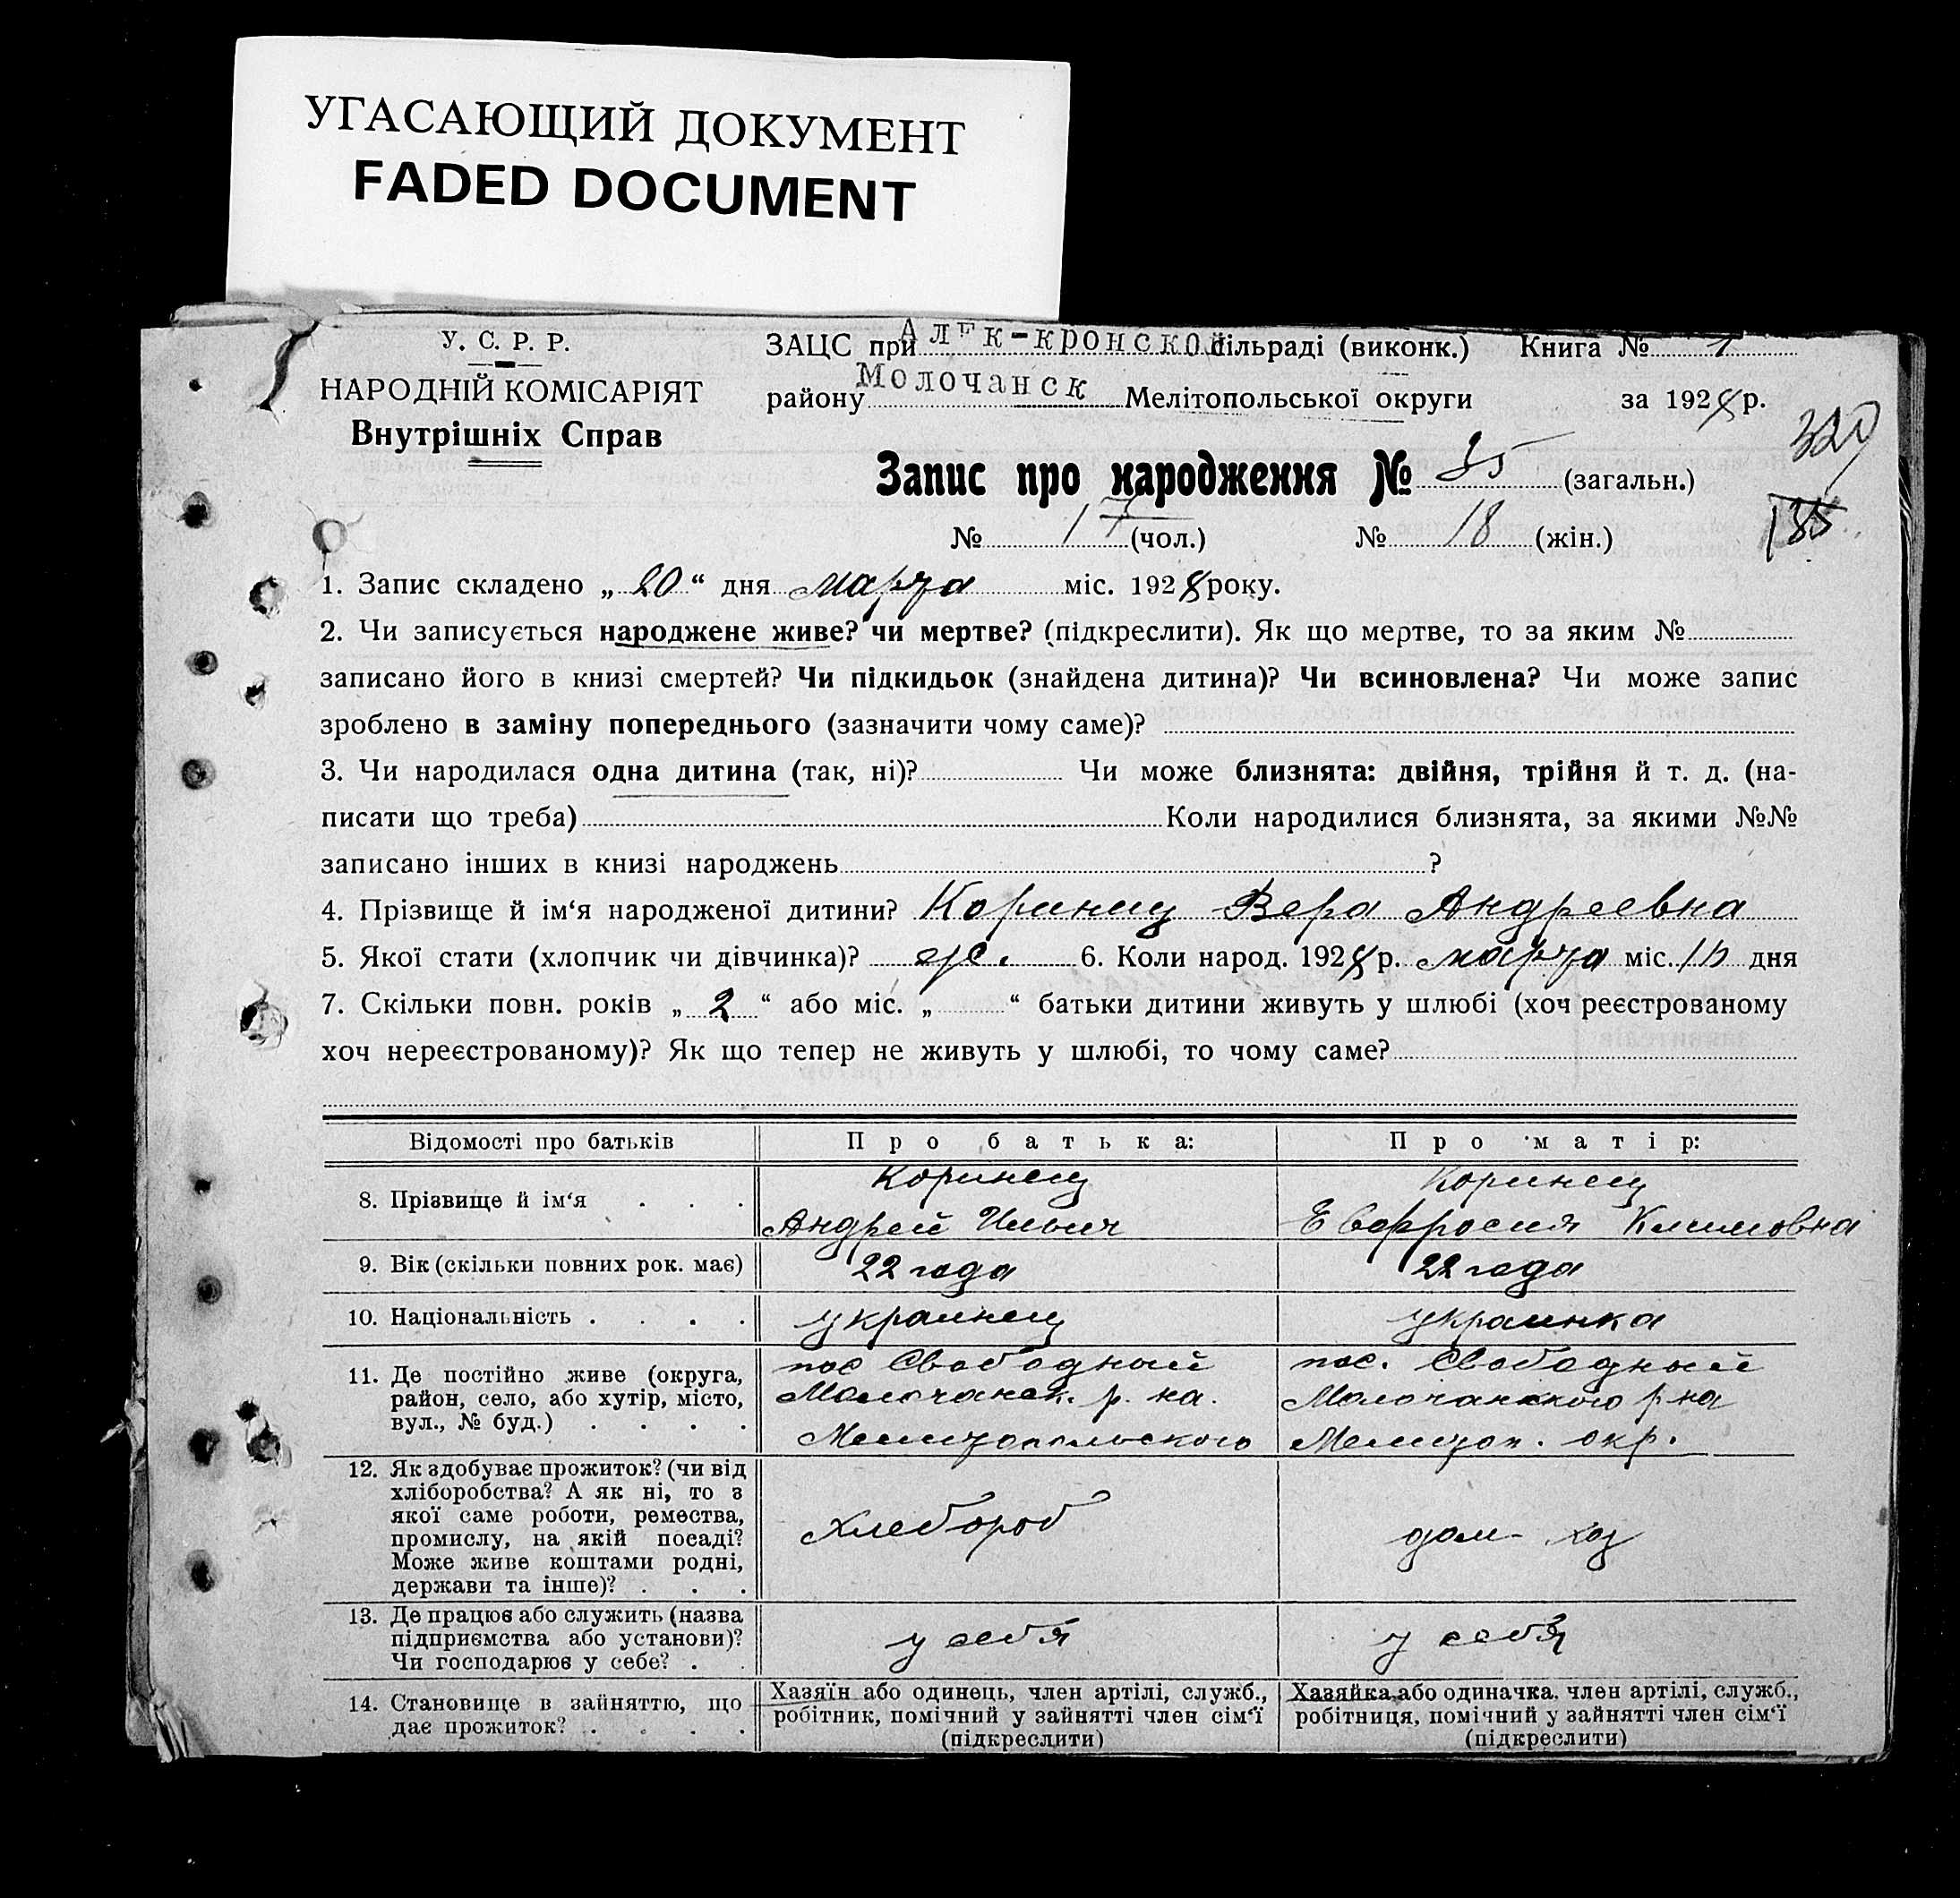 УГАСАЮЩИЙ ДОКУМЕНТ
FADED DOCUMENT
У. С. Р. Р.
НАРОДНІЙ КОМІСАРІЯТ
Внутрішніх Справ
ЗАЦС при Алек-кронской сільраді (виконк.) Книга № 1
району Молочанск Мелітопольської округи за 1928 р.
320
Запис про народження № 35 (загальн.)
135
№ 17 (чол.) № 18 (жін.)
1. Запис складено „ 20 “ дня марта міс. 1928 року.
2. Чи записується народжене живе? чи мертве? (підкреслити). Як що мертве, то за яким №
записано його в книзі смертей? Чи підкидьок (знайдена дитина)? Чи всиновлена? Чи може запис
зроблено в заміну попереднього (зазначити чому саме)?
3. Чи народилася одна дитина (так, ні)? Чи може близнята: двійня, трійня й т. д. (на-
писати що треба) Коли народилися близнята, за якими №№
записано інших в книзі народжень ?
4. Прізвище й ім‘я народженої дитини? Коринец Вера Андреевна
5. Якої стати (хлопчик чи дівчинка)? ж. 6. Коли народ. 1928 р. марта міс. дня
7. Скільки повн. років „ 2 “ або міс. „ “ батьки дитини живуть у шлюбі (хоч реєстрованому
хоч нереєстрованому)? Як що тепер не живуть у шлюбі, то чому саме?
Відомості про батьків Про батька: Про матір:
8. Прізвище й ім‘я . . . Коринец Андрей Ильич
Коринец Евфросия Климовна
9. Вік (скільки повних рок. має) 22 года 22 года
10. Національність . . . . украинец украинка
11. Де постійно живе (округа,
район, село, або хутір, місто,
вул., № буд.) . . . .
пос Свободный
Молочанск. р. на.
Мелитопольского
пос. Свободный
Молочанского р-на
Мелитоп. окр.
12. Як здобуває прожиток? (чи від
хліборобства? А як ні, то з
якої саме роботи, ремества,
промислу, на якій посаді?
Може живе коштами родні,
держави та інше)? . . .
Хлебороб
дом-хоз
13. Де працює або служить (назва
підприємства або установи)?
Чи господарює у себе? . .
у себя
у себя
14. Становище в зайняттю, що
дає прожиток? . . . .
Хазяїн або одинець, член артілі, служб.,
робітник, помічний у зайнятті член сім‘ї
(підкреслити)
Хазяйка або одиначка, член артілі, служб.,
робітниця, помічний у зайнятті член сім‘ї
(підкреслити)